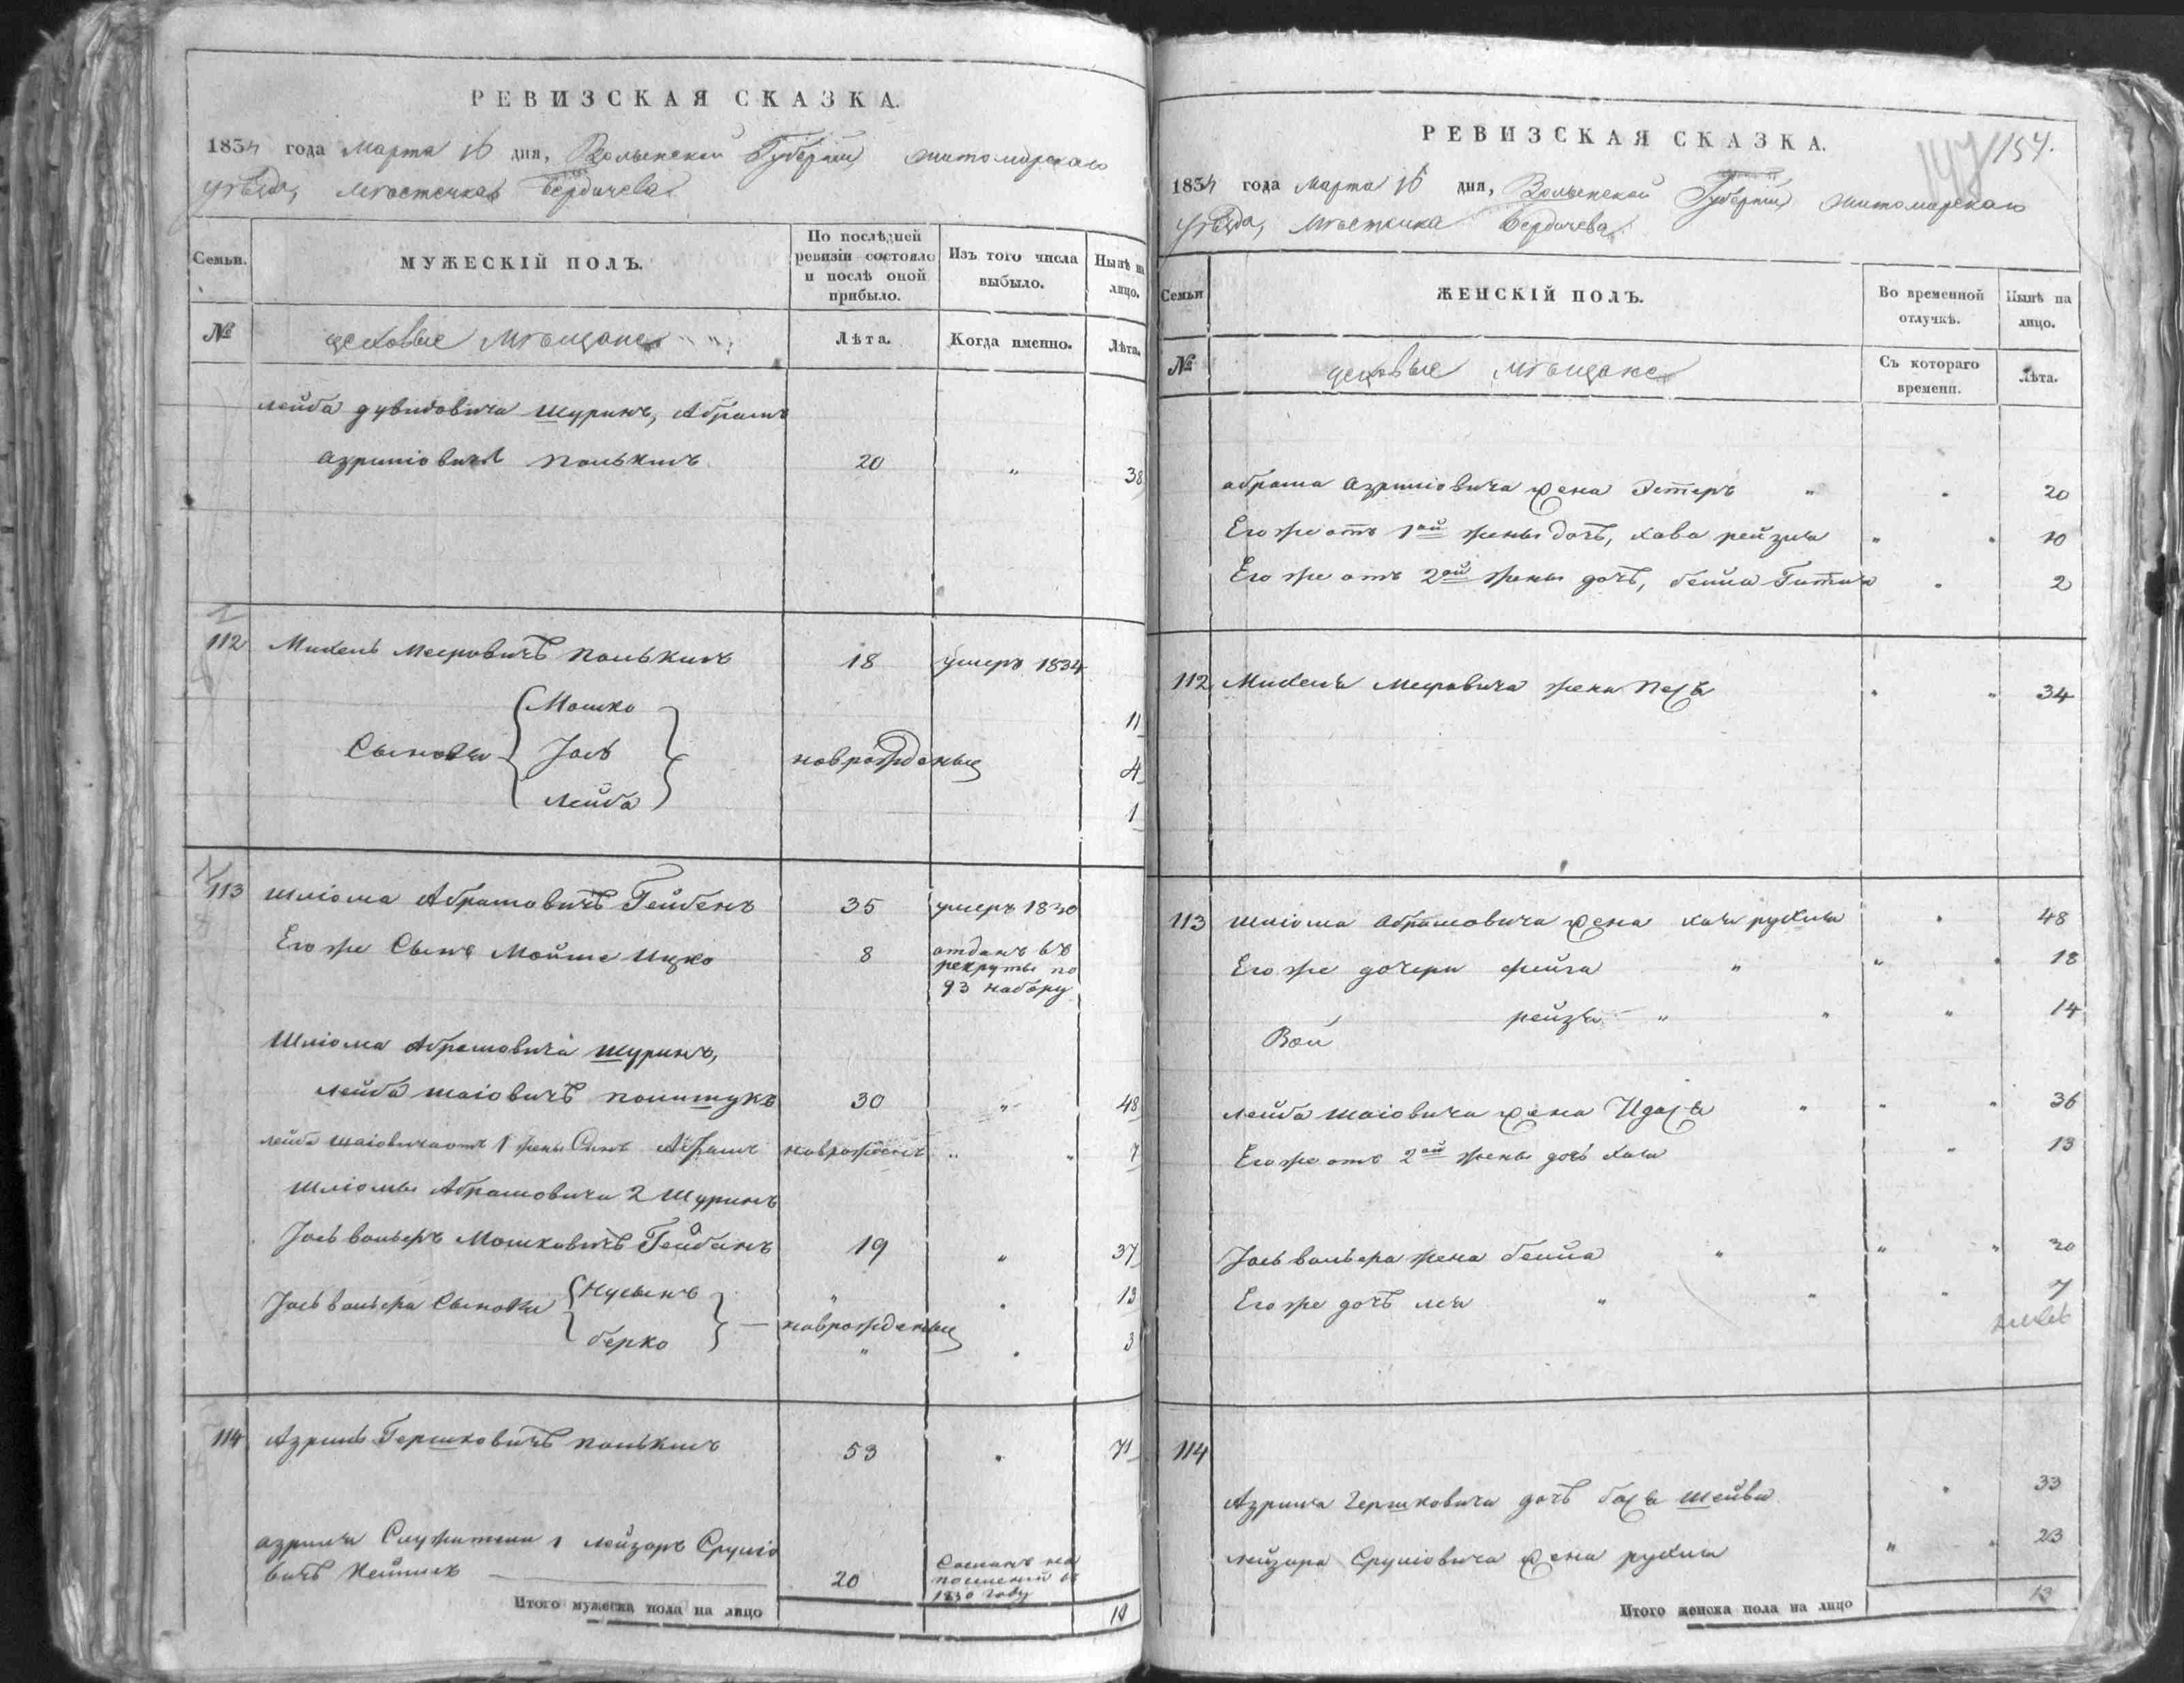 РЕВИЗСКАЯ СКАЗКА.
1834 года Марта 16 дня, Волынской Губернии, Житомирскаго
уѣзда, мѣстечка Бердичева
Семьи.
МУЖЕСКІЙ ПОЛЪ.
По послѣдней ревизіи состояло и послѣ оной прибыло.
Изъ того числа выбыло.
Нынѣ на лицо.
№
цеховые Мѣщане
Лѣта.
Когда именно.
Лѣта.
лейба дувидовича шуринъ, Абрамъ
азриліовичъ 20 " 38
112 Михель Мееровичъ 18 умеръ 1834
Мошко 11
Сыновья Іось новрожденые 4
лейба 1
113 шліома Абрамовичъ Гейбенъ 35 умеръ 1830
Его же Сынъ Мойше Ицко 8 отданъ въ
рекруты по
93 набору
Шліома Абрамовича шуринъ,
лейба шаіовичъ 30 " 48
лейба шаіовича отъ 1 жены Сынъ Абрамъ новрожденъ " " 7
Шліомы Абрамовича 2 шуринъ
Іось вольверъ Мошковичъ Гейбенъ 19 " 37
Іось вольвера Сыновья Нусынъ " 13
новрожденые
берко " 3
114 Азриль Гершковичъ 53 71
азриля Служители 1 лейзоръ Сруліо
вичъ 20
1830 году
Итого мужеска пола на лицо 10
РЕВИЗСКАЯ СКАЗКА.
147 154.
1834 года Марта 16 дня, Волынской Губерніи, Житомирскаго
уѣзда, мѣстечка Бердичева
Семьи
ЖЕНСКІЙ ПОЛЪ.
Во временной отлучкѣ.
Нынѣ на лицо.
№
цеховые мѣщане
Съ котораго времени.
Лѣта.
абрама азриліовича жена Эстеръ " 20
Его же отъ 1ой жены дочь, хава рейзля " 10
Его же отъ 2ой жены дочь, бейла Гитля 2
112 Михеля Мееровича жена 34
113 шліома абрамовича жена хая рухля 48
Его же дочери фейга " " 18
рейзя " " " 14
Вой
лейба шаіовича жена " " " 36
Его же отъ 2ой жены дочь хая " 13
Іось вольвера жена бейла " " " 30
Его же дочь лея " " " 7
114
Азриля Гершковича дочь бася шейва 33
лейзора Сруліовича жена рухля " " 23
Итого женска пола на лицо 13